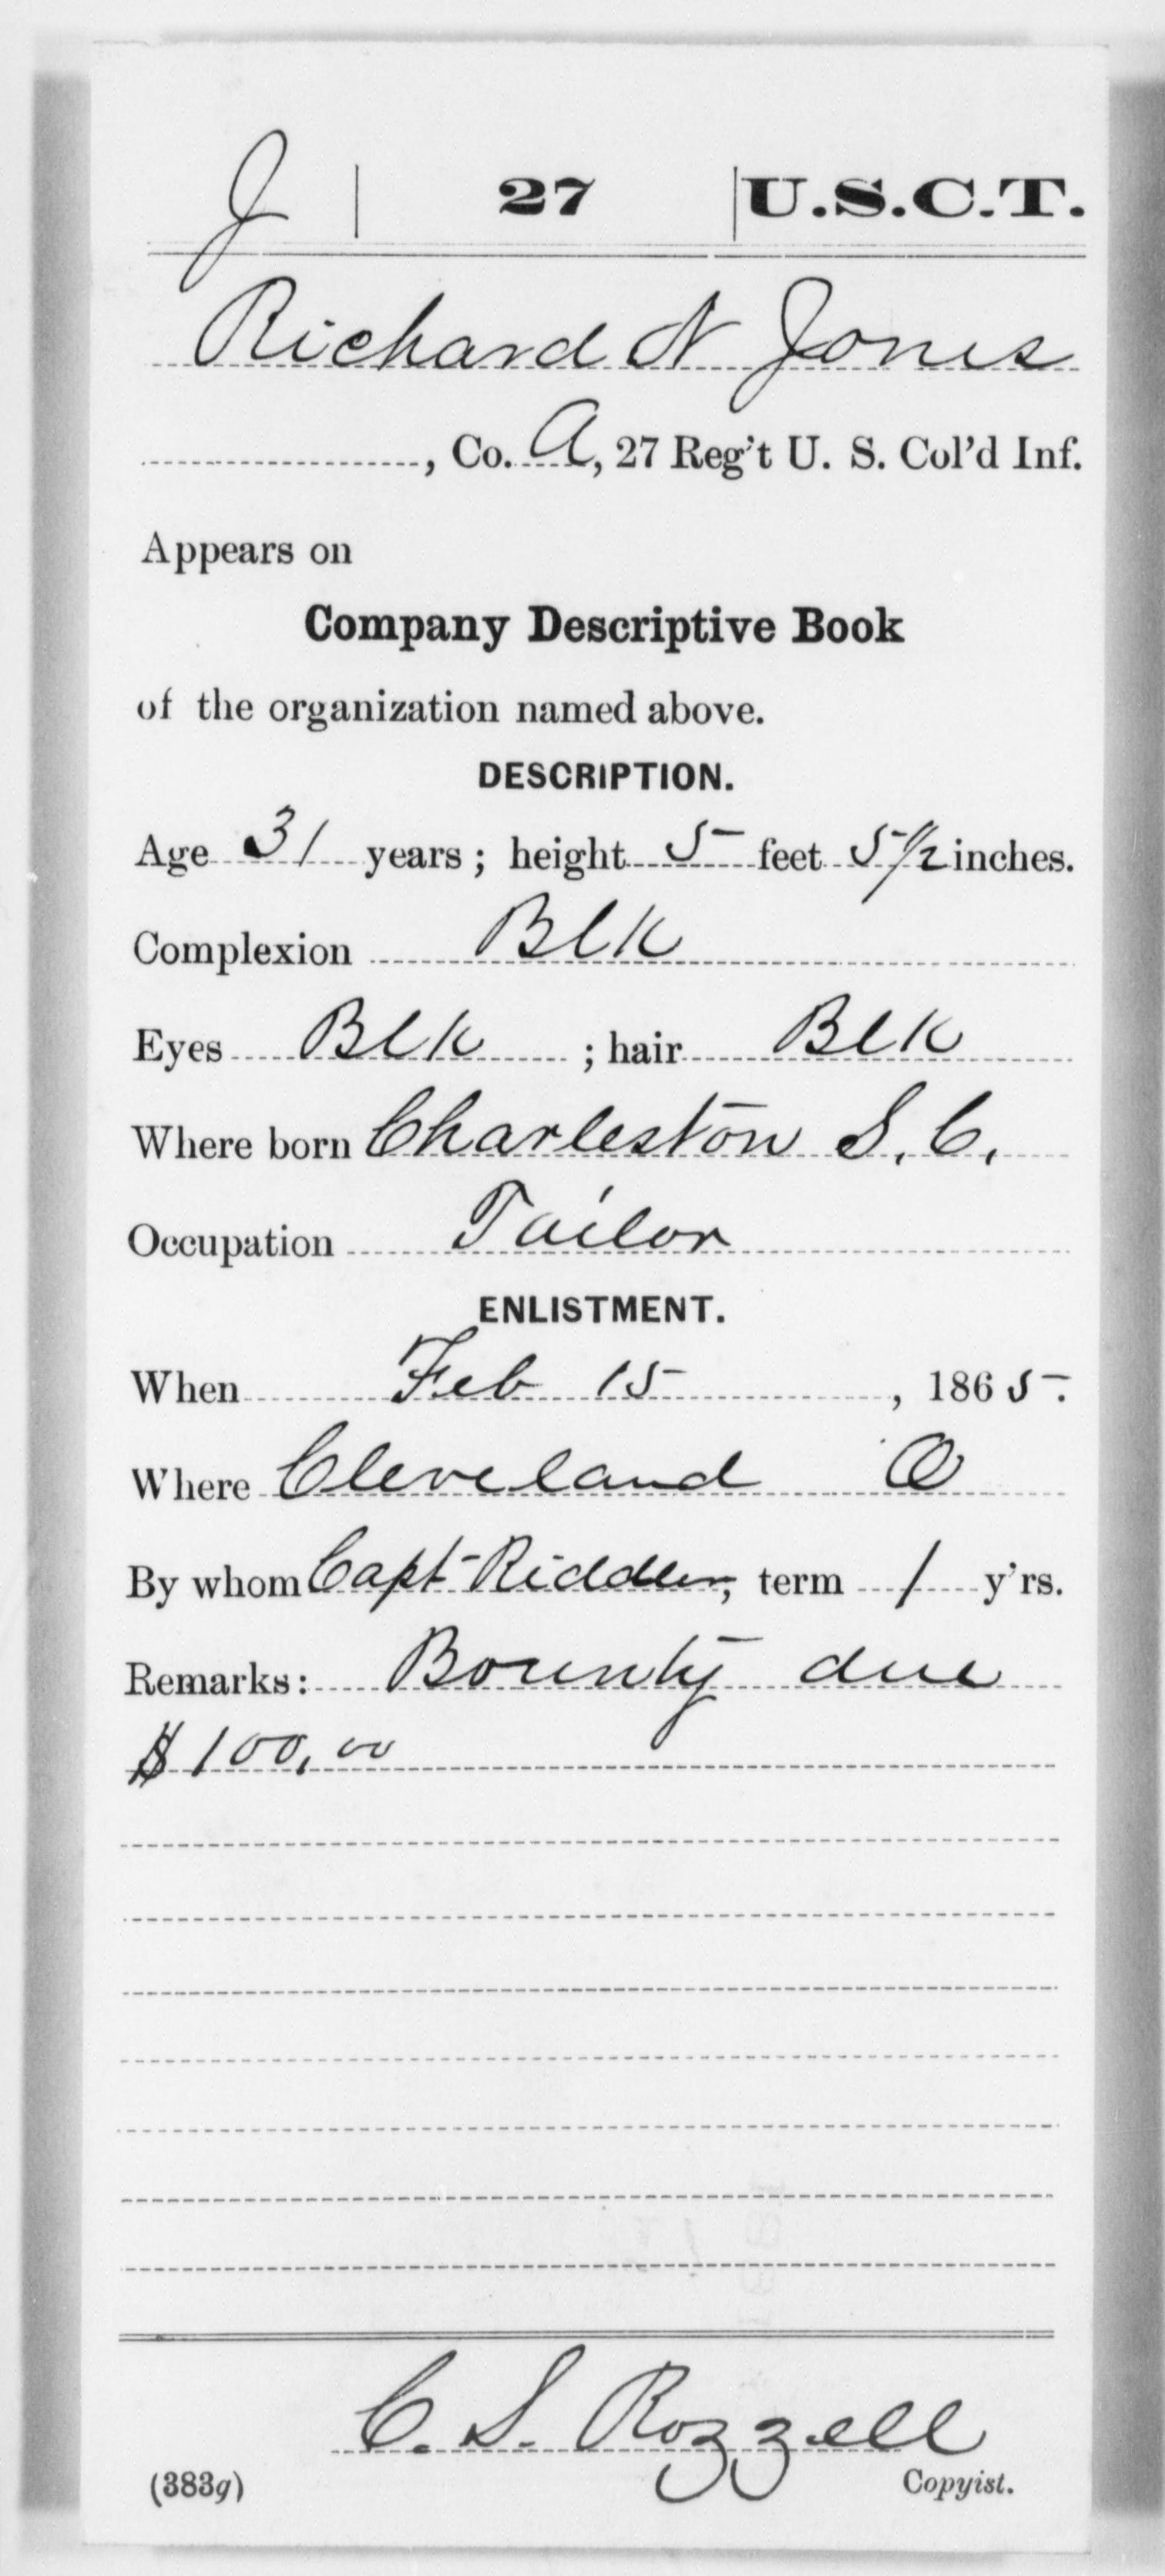 J | 27 | U.S.C.T.
Richard N Jones
, Co. A, 27 Reg't U. S. Col'd Inf.
Appears on
Company Descriptive Book
of the organization named above.
DESCRIPTION.
Age 31 years; height 5 feet 5 1/2 inches.
Complexion Blk
Eyes Blk; hair Blk
Where born Charleston S. C.
Occupation Tailor
ENLISTMENT.
When Feb 15, 1865.
Where Cleveland O
By whom Capt Riddler, term 1 y'rs.
Remarks: Bounty due
$100.00
C. S. Rozzell
(383g) Copyist.